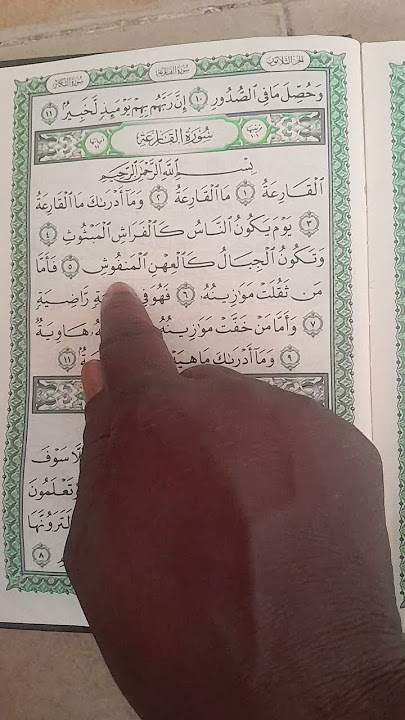 الجزء الثلاثون
سورة القارعة
سورة التكاثر
وَحُصِّلَ مَا فِى ٱلصُّدُورِ ١٠ إِنَّ رَبَّهُم بِهِمْ يَوْمَئِذٍ لَّخَبِيرٌۢ ١١
سُورَةُ القَارِعَةِ
بِسْمِ ٱللَّهِ ٱلرَّحْمَٰنِ ٱلرَّحِيمِ
ٱلْقَارِعَةُ ١ مَا ٱلْقَارِعَةُ ٢ وَمَآ أَدْرَىٰكَ مَا ٱلْقَارِعَةُ
٣ يَوْمَ يَكُونُ ٱلنَّاسُ كَٱلْفَرَاشِ ٱلْمَبْثُوثِ ٤
وَتَكُونُ ٱلْجِبَالُ كَٱلْعِهْنِ ٱلْمَنفُوشِ ٥ فَأَمَّا
مَن ثَقُلَتْ مَوَٰزِينُهُۥ ٦ فَهُوَ فِى رَّاضِيَةٍ
٧ وَأَمَّا مَنْ خَفَّتْ مَوَٰزِينُهُۥ هَاوِيَةٌ
٩ وَمَآ أَدْرَىٰكَ مَا هِيَهْ ١١
سَوْفَ
تَعْلَمُونَ
لَتَرَوُنَّهَا
٨